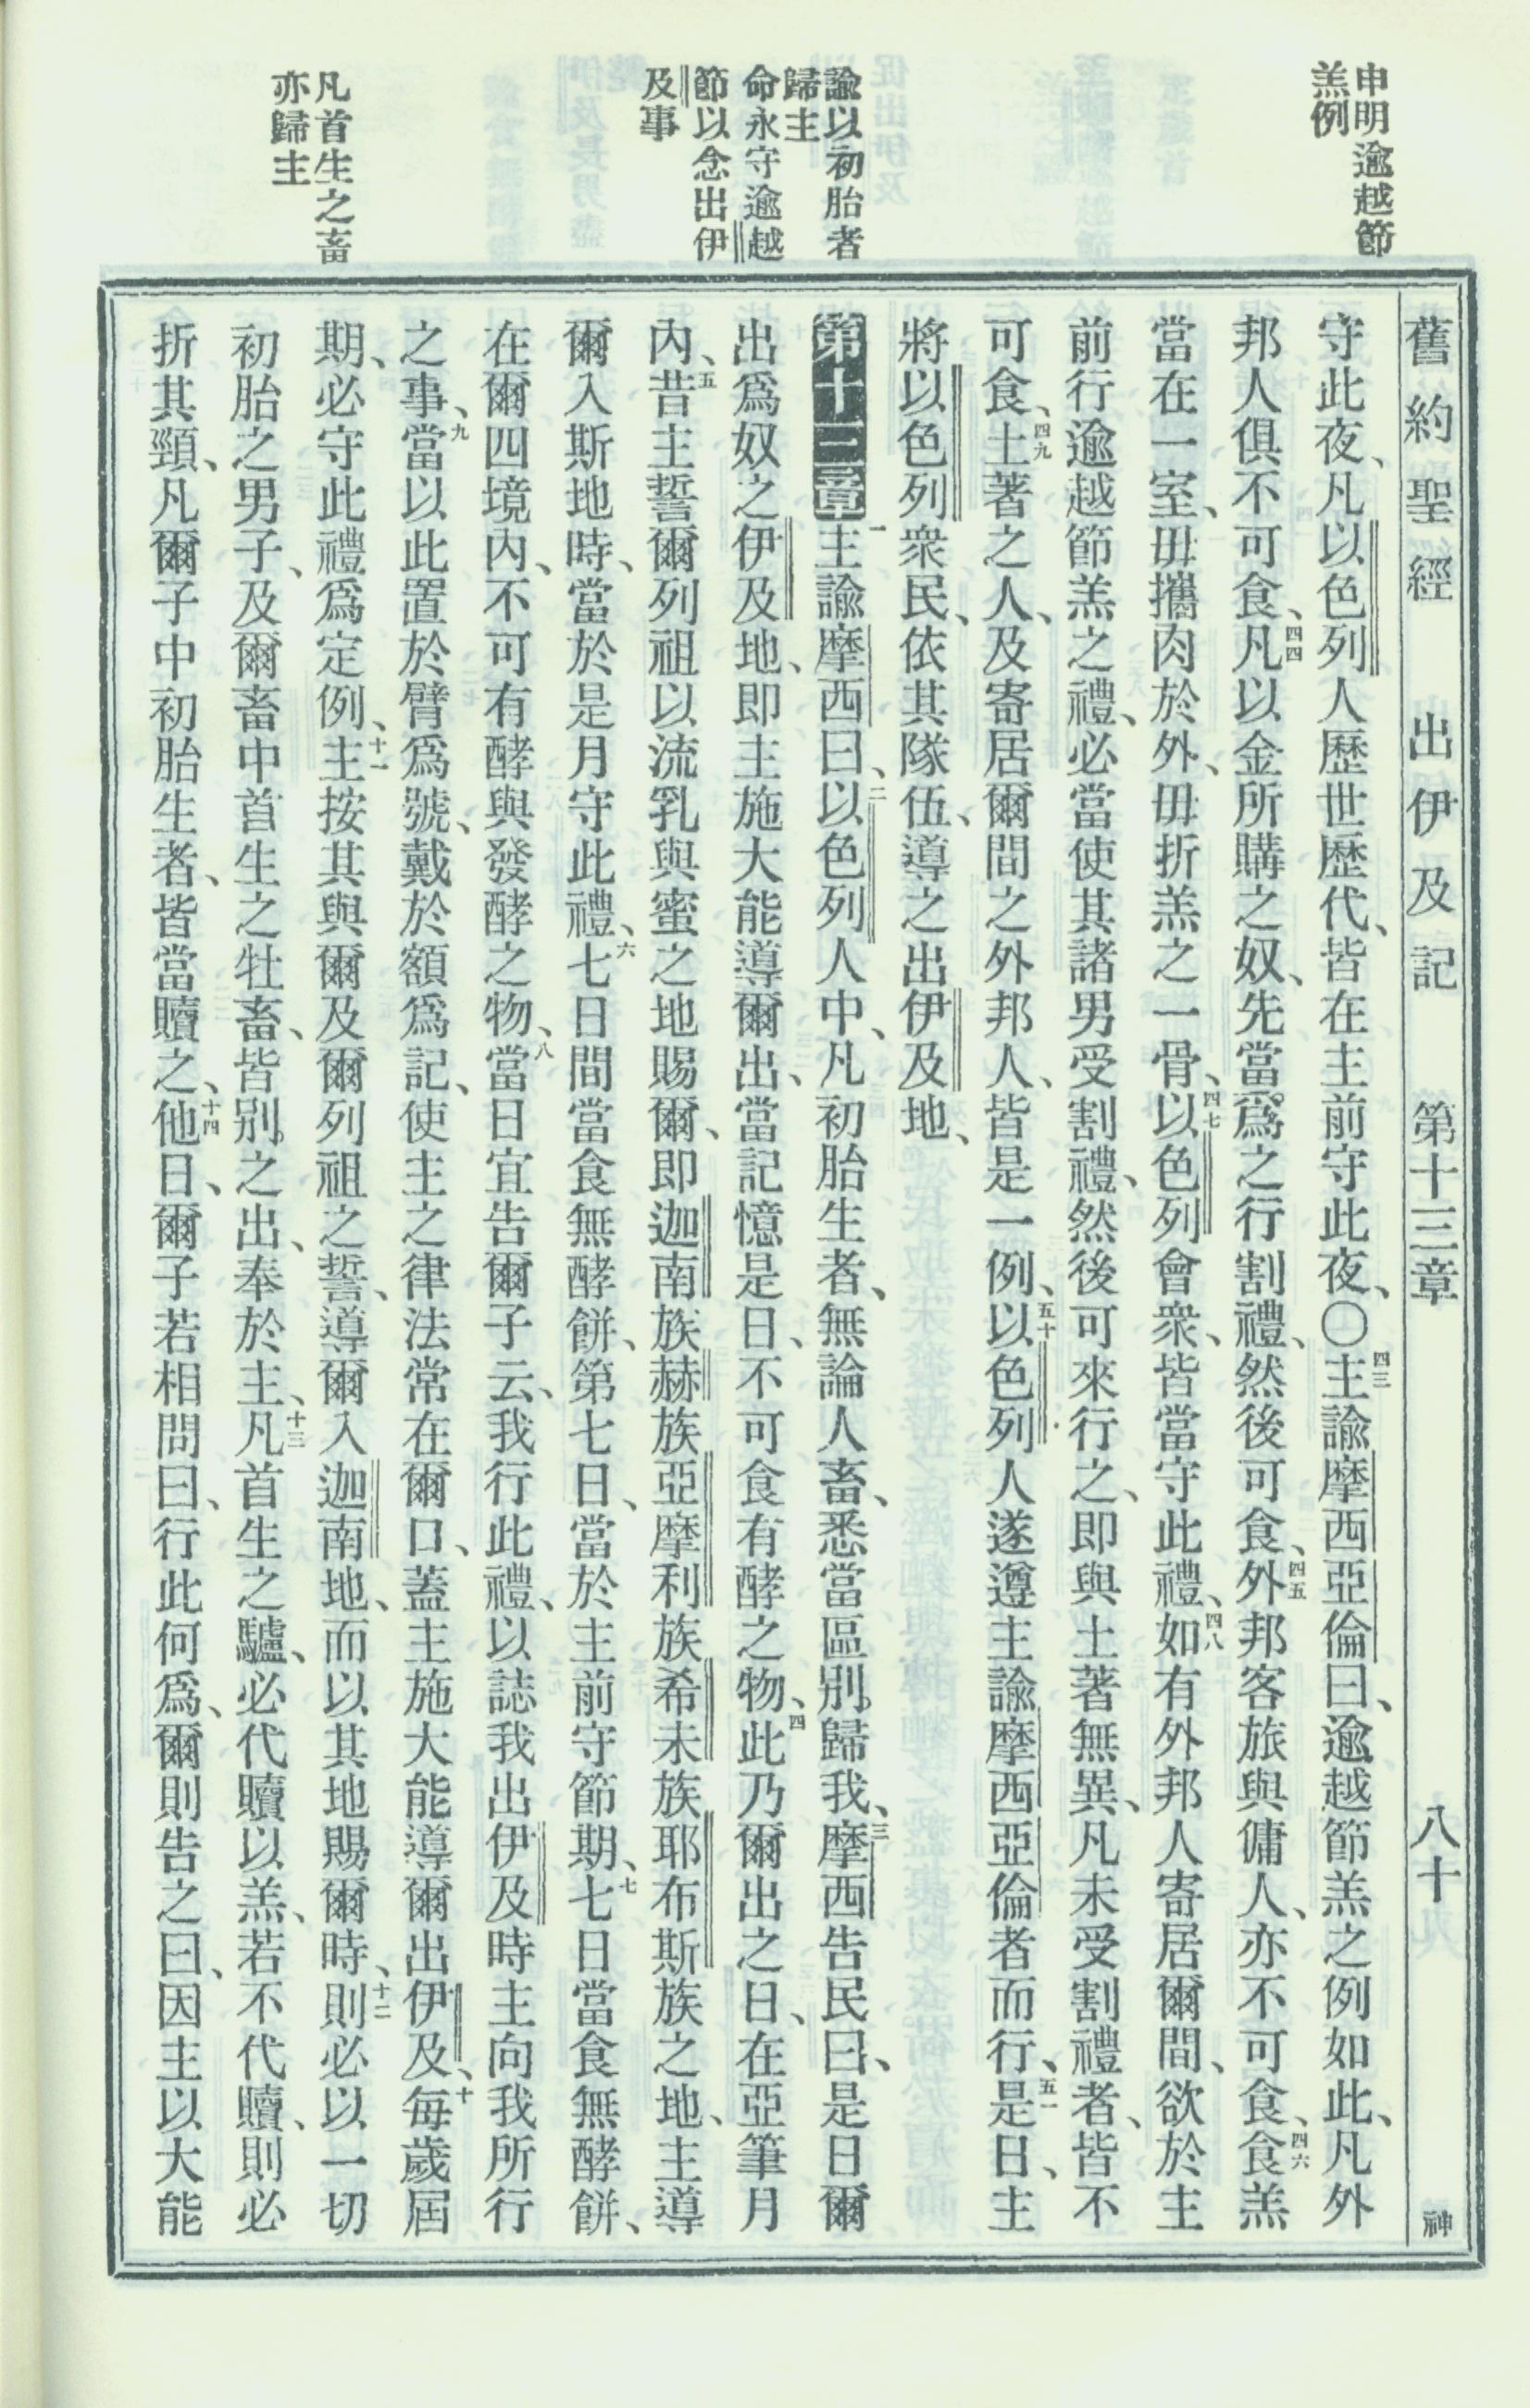 舊約聖經 出伊及記 第十三章 八十 神
申明逾越節
羔例
諭以初胎者
歸主
命永守逾越
節以念出伊
及事
凡首生之畜
亦歸主
守此夜、凡以色列人歷世歷代、皆在主前守此夜、〇四三主諭摩西亞倫曰、逾越節羔之例如此、凡外
邦人俱不可食、四四凡以金所購之奴、先當爲之行割禮、然後可食、四五外邦客旅與傭人、亦不可食、四六食羔
當在一室、毋攜肉於外、毋折羔之一骨、四七以色列會衆、皆當守此禮、四八如有外邦人寄居爾間、欲於主
前行逾越節羔之禮、必當使其諸男受割禮、然後可來行之、即與土著無異、凡未受割禮者、皆不
可食、四九土著之人、及寄居爾間之外邦人、皆是一例、五十以色列人遂遵主諭摩西亞倫者而行、五一是日、主
將以色列衆民、依其隊伍、導之出伊及地、
第十三章 一主諭摩西曰、二以色列人中、凡初胎生者、無論人畜、悉當區別歸我、三摩西告民曰、是日爾
出爲奴之伊及地、即主施大能導爾出、當記憶是日、不可食有酵之物、四此乃爾出之日、在亞筆月
內、五昔主誓爾列祖以流乳與蜜之地賜爾、即迦南族赫族亞摩利族希未族耶布斯族之地、主導
爾入斯地時、當於是月守此禮、六七日間當食無酵餅、第七日、當於主前守節期、七七日當食無酵餅、
在爾四境內、不可有酵與發酵之物、八當日宜告爾子云、我行此禮、以誌我出伊及時主向我所行
之事、九當以此置於臂爲號、戴於額爲記、使主之律法常在爾口、蓋主施大能導爾出伊及、十每歲屆
期、必守此禮爲定例、十一主按其與爾及爾列祖之誓、導爾入迦南地、而以其地賜爾時、十二則必以一切
初胎之男子、及爾畜中首生之牡畜、皆別之出、奉於主、十三凡首生之驢、必代贖以羔、若不代贖、則必
折其頸、凡爾子中初胎生者、皆當贖之、十四他日、爾子若相問曰、行此何爲、爾則告之曰、因主以大能